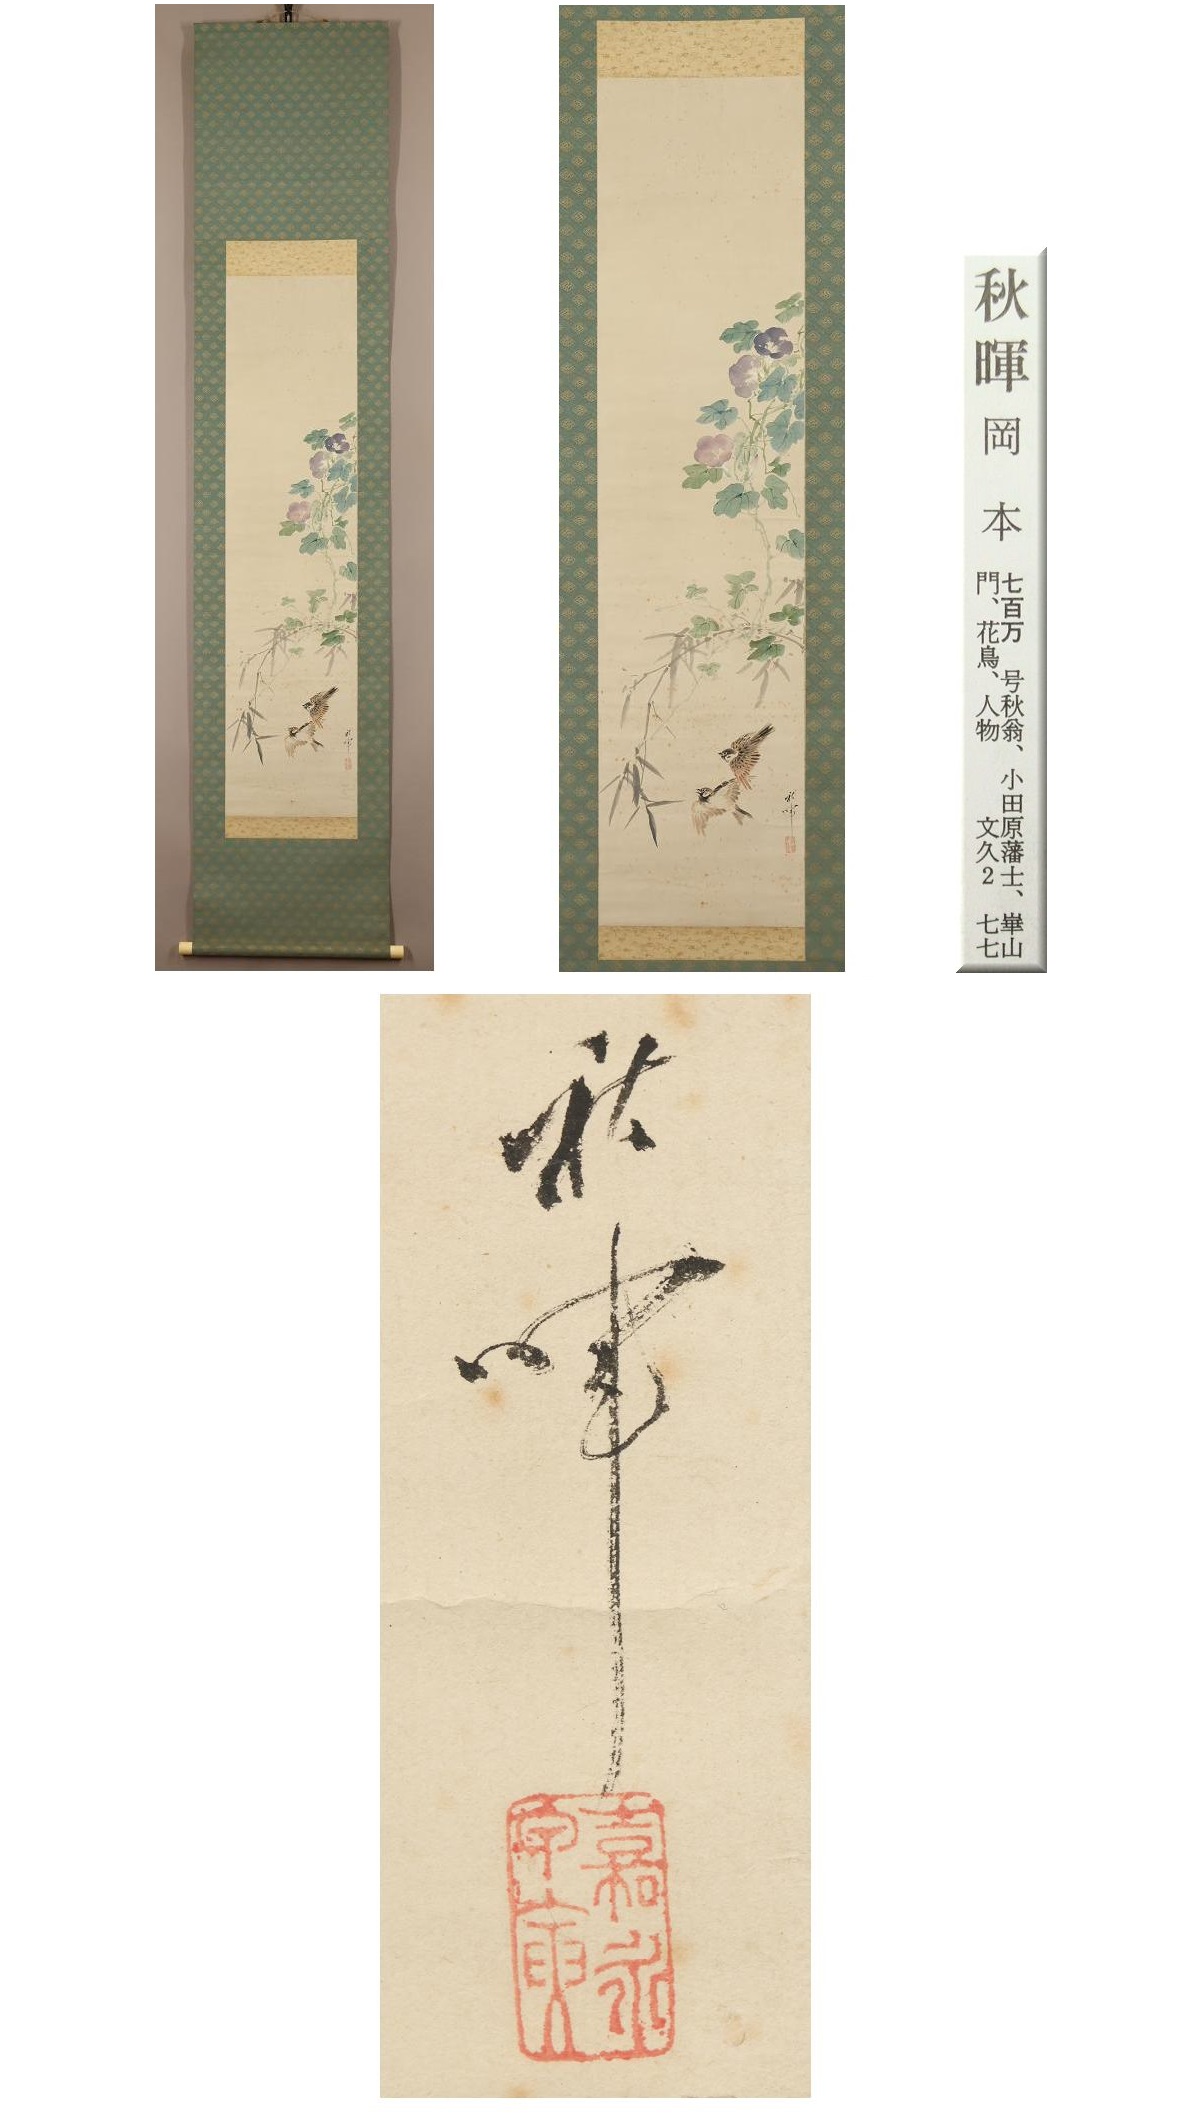 秋暉 岡本 七百万 号秋翁、小田原藩士、崋山
門、花鳥、人物 文久2 七七
秋暉
嘉永
寅